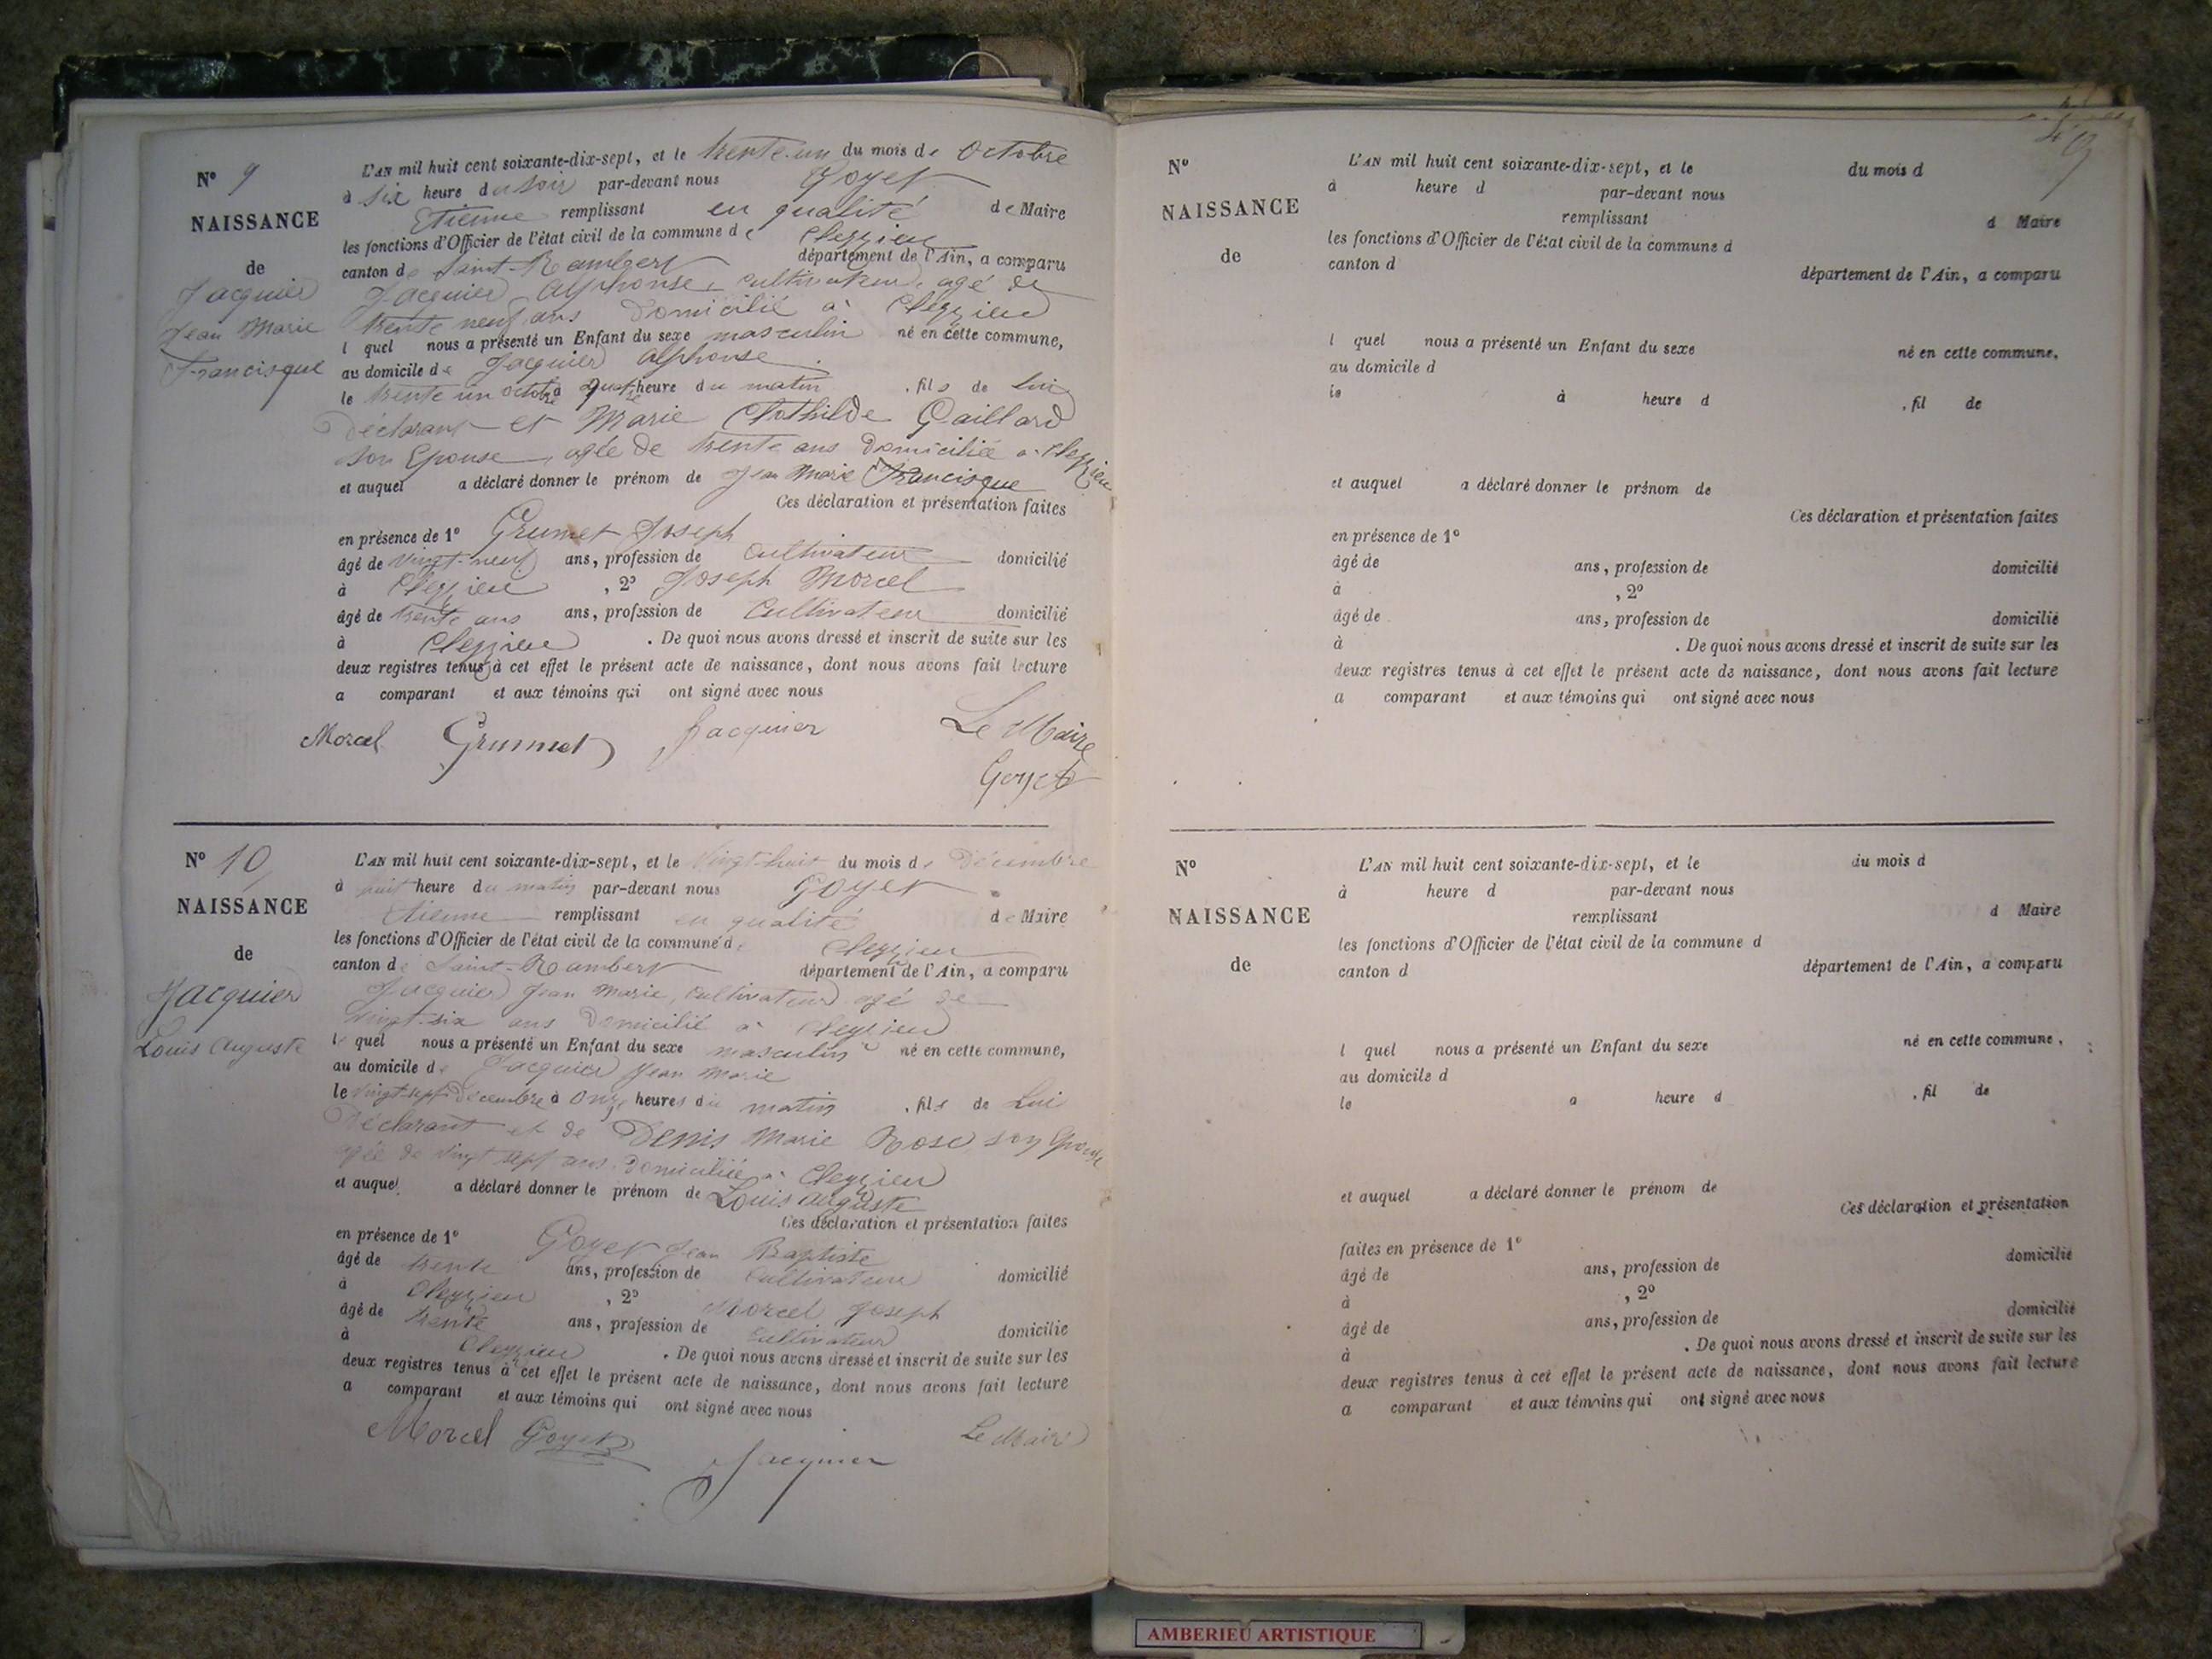 N° 9
NAISSANCE
de
Jacquier
Jean Marie
Francisque
L'AN mil huit cent soixante-dix-sept, et le trente-un du mois de Octobre
à six heure du soir par-devant nous Goyet
Etienne remplissant en qualité de Maire
les fonctions d'Officier de l'état civil de la commune de Cleyzieu
canton de Saint-Rambert département de l'Ain, a comparu
Jacquier Alphonse, cultivateur, agé de
trente neuf ans domicilié à Cleyzieu
l quel nous a présenté un Enfant du sexe masculin né en cette commune,
au domicile de Jacquier Alphonse
le trente un octobre à quatre heure du matin , fils de lui
Déclarant et Marie Clothilde Gaillard
son Epouse, agée de trente ans domiciliée à Cleyzieu
et auquel a déclaré donner le prénom de Jean Marie Francisque
Ces déclaration et présentation faites
en présence de 1° Grumet Joseph
âgé de vingt-neuf ans, profession de Cultivateur domicilié
à Cleyzieu , 2° Joseph Morcel
âgé de trente ans ans, profession de Cultivateur domicilié
à Cleyzieu . De quoi nous avons dressé et inscrit de suite sur les
deux registres tenus à cet effet le présent acte de naissance, dont nous avons fait lecture
a comparant et aux témoins qui ont signé avec nous
Morcel Grumet Jacquier Le Maire
Goyet
N° 10
NAISSANCE
de
Jacquier
Louis Auguste
L'AN mil huit cent soixante-dix-sept, et le vingt-huit du mois de Décembre
à huit heure du matin par-devant nous Goyet
Etienne remplissant en qualité de Maire
les fonctions d'Officier de l'état civil de la commune de Cleyzieu
canton de Saint-Rambert département de l'Ain, a comparu
Jacquier Jean Marie, cultivateur agé de
vingt-six ans Domicilié à Cleyzieu
le quel nous a présenté un Enfant du sexe masculin né en cette commune,
au domicile de Jacquier Jean Marie
le vingt sept Décembre à onze heures du matin , fils de Lui
Déclarant et de Denis Marie Rose son Epouse
agée de vingt sept ans Domiciliée à Cleyzieu
et auquel a déclaré donner le prénom de Louis Auguste
Ces déclaration et présentation faites
en présence de 1° Goyet Jean Baptiste
âgé de trente ans, profession de Cultivateur domicilié
à Cleyzieu , 2° Morcel Joseph
âgé de trente ans, profession de Cultivateur domicilié
à Cleyzieu . De quoi nous avons dressé et inscrit de suite sur les
deux registres tenus à cet effet le présent acte de naissance, dont nous avons fait lecture
a comparant et aux témoins qui ont signé avec nous
Morcel Goyet Jacquier Le Maire
N°
NAISSANCE
de
L'AN mil huit cent soixante-dix-sept, et le du mois d
à heure d par-devant nous
remplissant d Maire
les fonctions d'Officier de l'état civil de la commune d
canton d département de l'Ain, a comparu
l quel nous a présenté un Enfant du sexe né en cette commune,
au domicile d
le à heure d , fil de
et auquel a déclaré donner le prénom de
Ces déclaration et présentation faites
en présence de 1°
âgé de ans, profession de domicilié
à , 2°
âgé de ans, profession de domicilié
à . De quoi nous avons dressé et inscrit de suite sur les
deux registres tenus à cet effet le présent acte de naissance, dont nous avons fait lecture
a comparant et aux témoins qui ont signé avec nous
N°
NAISSANCE
de
L'AN mil huit cent soixante-dix-sept, et le du mois d
à heure d par-devant nous
remplissant d Maire
les fonctions d'Officier de l'état civil de la commune d
canton d département de l'Ain, a comparu
l quel nous a présenté un Enfant du sexe né en cette commune,
au domicile d
le a heure d , fil de
et auquel a déclaré donner le prénom de
Ces déclaration et présentation
faites en présence de 1°
âgé de ans, profession de domicilié
à , 2°
âgé de ans, profession de domicilié
à . De quoi nous avons dressé et inscrit de suite sur les
deux registres tenus à cet effet le présent acte de naissance, dont nous avons fait lecture
a comparant et aux témoins qui ont signé avec nous
AMBERIEU ARTISTIQUE